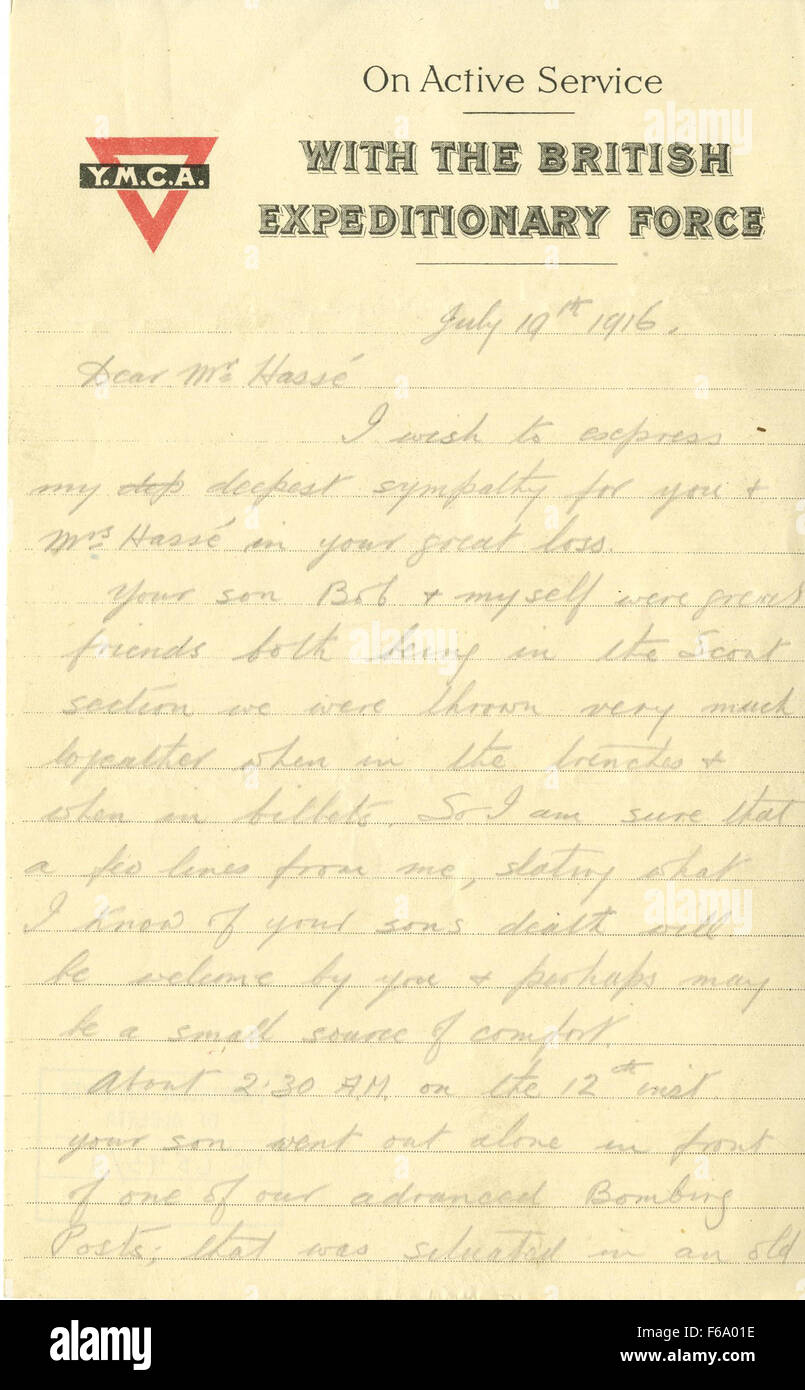 On Active Service
WITH THE BRITISH
EXPEDITIONARY FORCE
Y.M.C.A.
July 19th 1916.
Dear Mr Hassé
I wish to express
my dep deepest sympathy for you &
Mrs Hassé in your great loss.
Your son Bob & myself were great
friends both being in the Scout
section we were thrown very much
togeather when in the trenches &
when in billets. So I am sure that
a few lines from me, stating what
I know of your sons death will
be welcome by you & perhaps may
be a small source of comfort.
About 2.30 A.M. on the 12th inst.
your son went out alone in front
of one of our advanced Bombing
Posts; that was situated in an old
alamy
alamy
Image ID: F6A01E
www.alamy.com